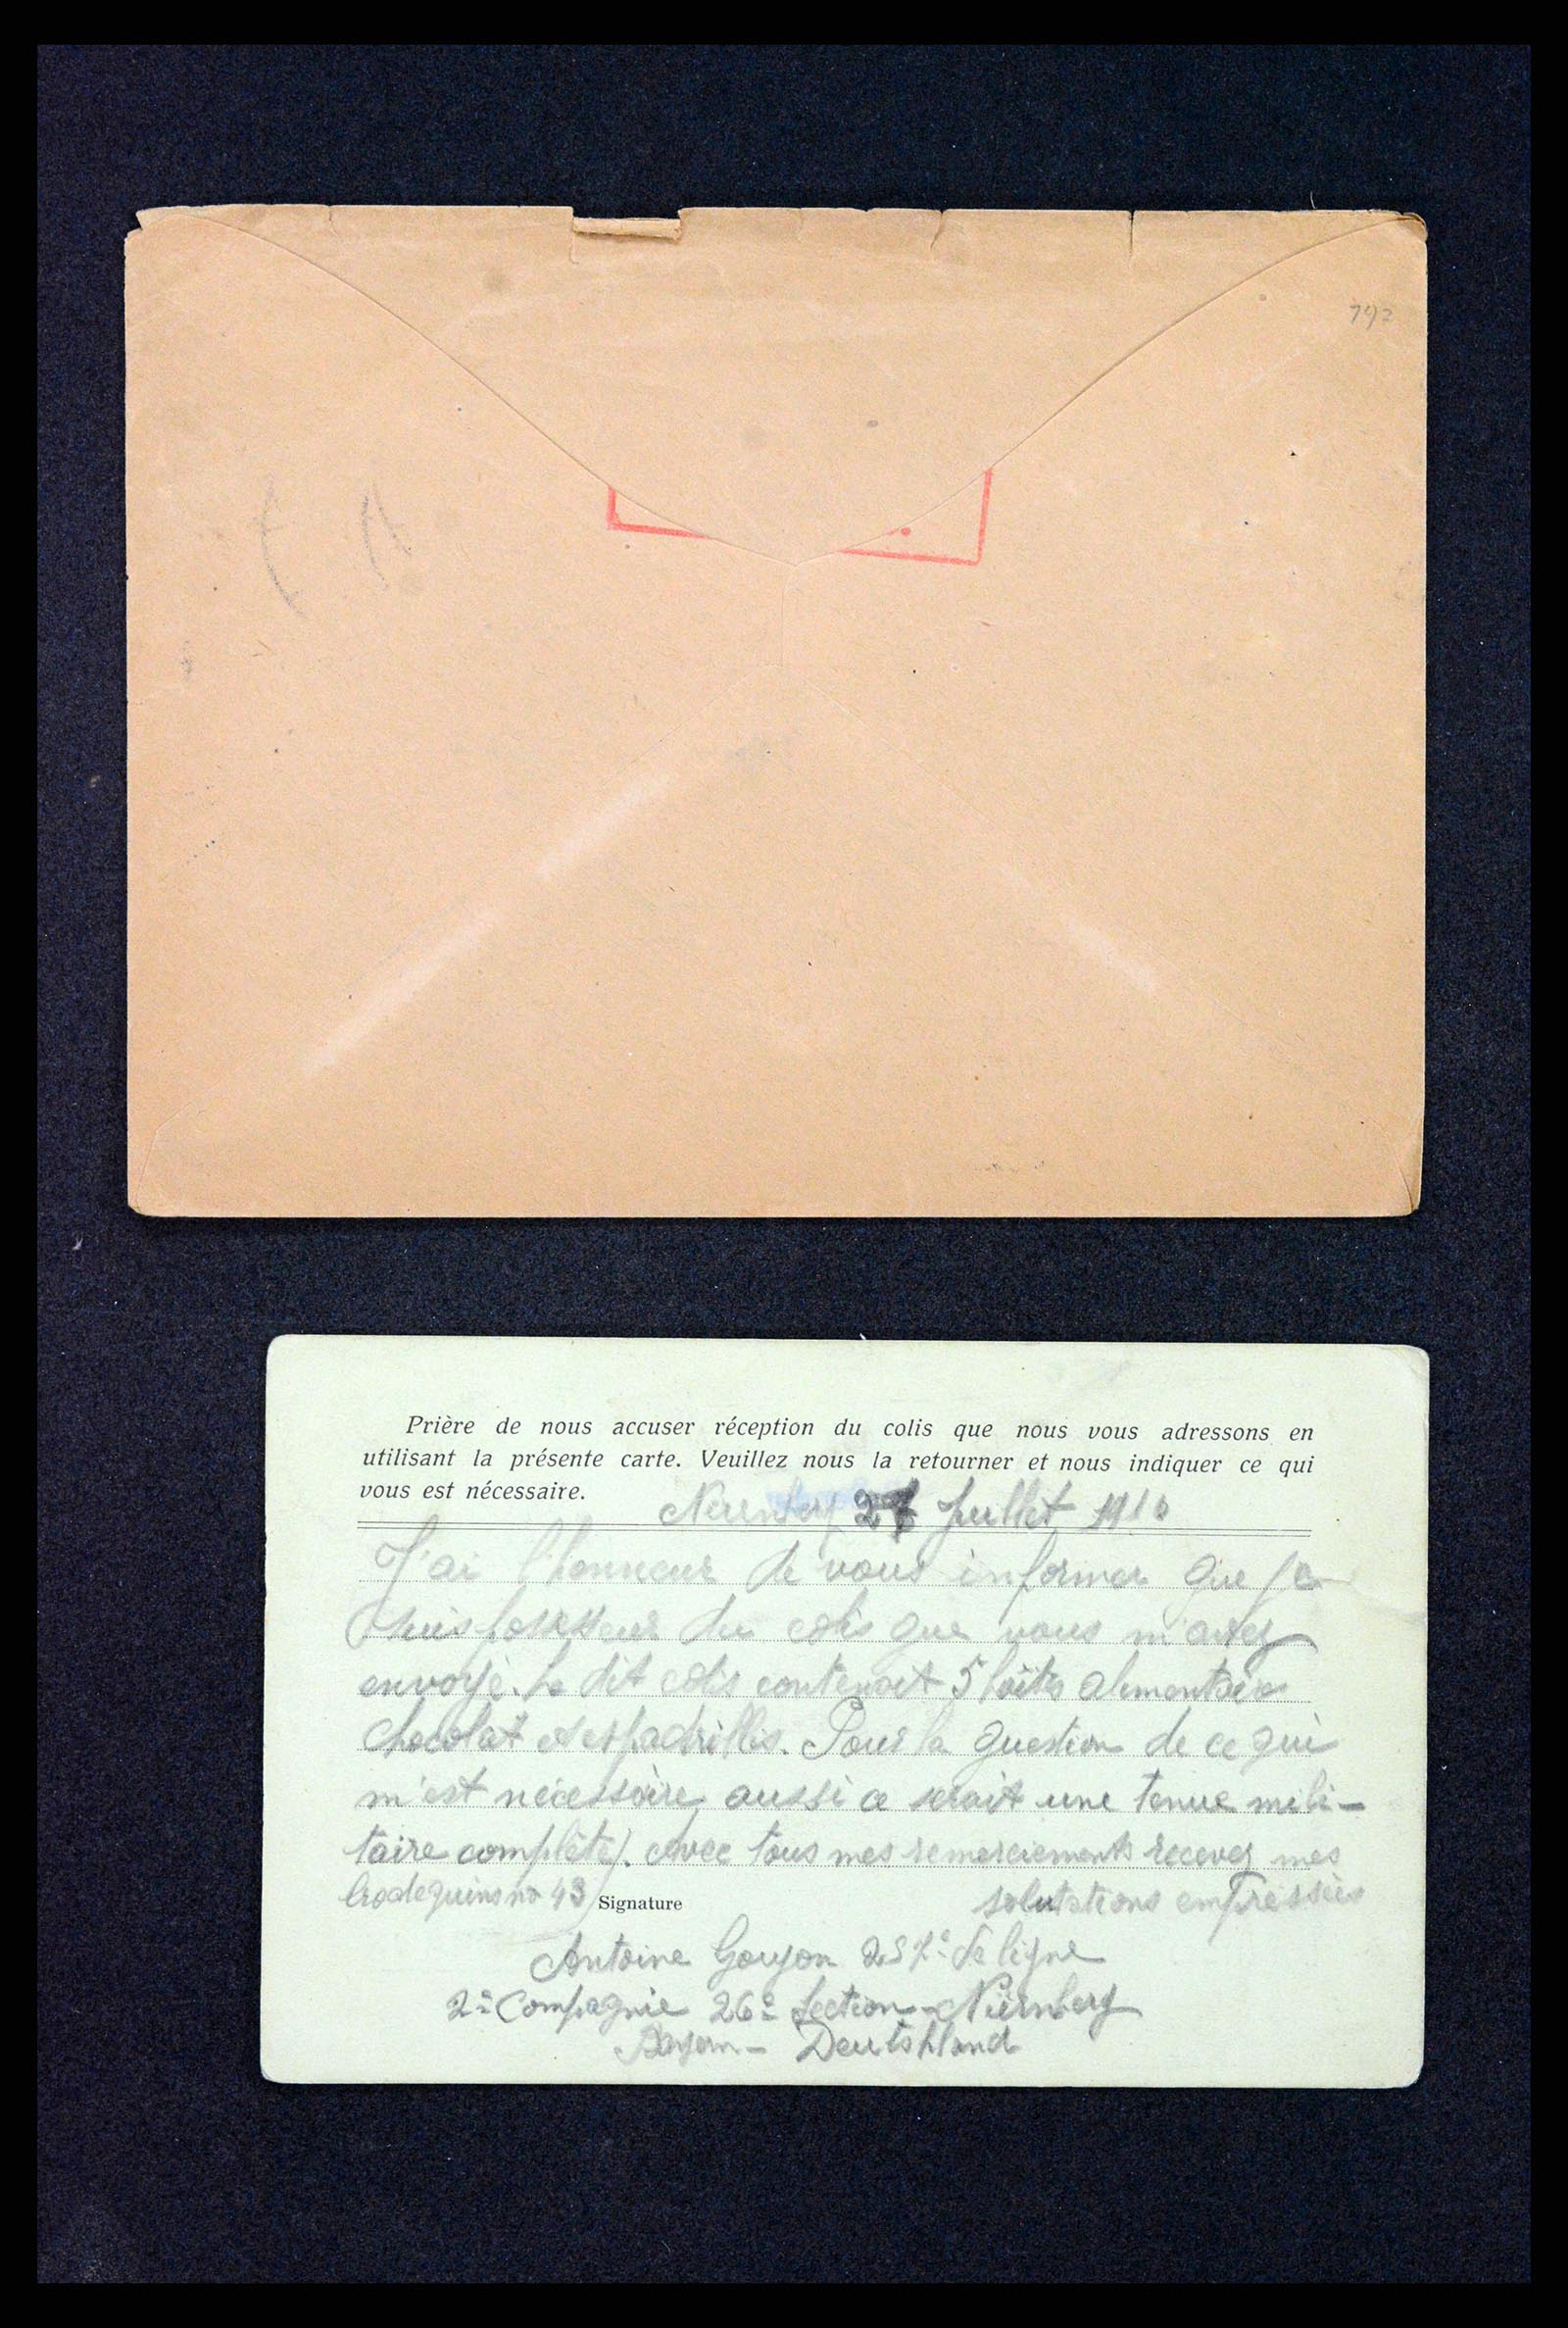 792
Prière de nous accuser réception du colis que nous vous adressons en
utilisant la présente carte. Veuillez nous la retourner et nous indiquer ce qui
vous est nécessaire.
Nürnberg 27 Juillet 191
J'ai l'honneur de vous informer que je
suis possesseur du colis que vous m'avez
envoyé. Le dit colis contenait 5 boites alimentaire
chocolat et espadrilles. Pour la question de ce qui
m'est nécessaire aussi ce serait une tenue mili-
taire complète). Avec tous mes remerciements recevez mes
brodequins no 43
Signature
salutations empressées
Antoine Goujon de ligne
2e Compagnie 26e Section - Nürnberg
Bayern - Deutshland